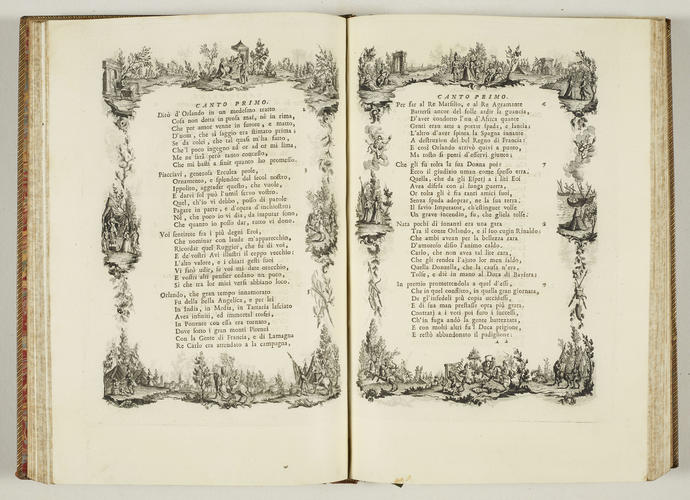 CANTO PRIMO.
2
Dirò d'Orlando in un medesmo tratto
Cosa non detta in prosa mai, nè in rima,
Che per amor venne in furore, e matto,
D'uom, che sì saggio era stimato prima;
Se da colei, che tal quasi m'ha fatto,
Che'l poco ingegno ad or ad or mi lima,
Me ne sarà però tanto concesso,
Che mi basti a finir quanto ho promesso.
3
Piacciavi, generosa Erculea prole,
Ornamento, e splendor del secol nostro,
Ippolito, aggradir questo, che vuole,
E darvi sol può l'umil servo vostro.
Quel, ch'io vi debbo, posso di parole
Pagare in parte, e d'opera d'inchiostro:
Nè, che poco io vi dia, da imputar sono,
Che quanto io posso dar, tutto vi dono.
4
Voi sentirete fra i più degni Eroi,
Che nominar con laude m'apparecchio,
Ricordar quel Ruggier, che fu di voi,
E de' vostri Avi illustri il ceppo vecchio:
L'alto valore, e i chiari gesti suoi
Vi farò udir, se voi mi date orecchio,
E vostri alti pensier cedano un poco,
Sì che tra lor miei versi abbiano loco.
5
Orlando, che gran tempo innamorato
Fu della bella Angelica, e per lei
In India, in Media, in Tartaria lasciato
Avea infiniti, ed immortal trofei,
In Ponente con essa era tornato,
Dove sotto i gran monti Pirenei
Con la Gente di Francia, e di Lamagna
Re Carlo era attendato a la campagna,
CANTO PRIMO.
6
Per far al Re Marsilio, e al Re Agramante
Battersi ancor del folle ardir la guancia,
D'aver condotto l'un d'Africa quante
Genti erano atte a portar spada, e lancia;
L'altro d'aver spinta la Spagna innante
A destruzion del bel Regno di Francia;
E così Orlando arrivò quivi a punto,
Ma tosto si pentì d'esservi giunto;
7
Che gli fu tolta la sua Donna poi:
Ecco il giudicio uman come spesso erra.
Quella, che da gli Esperj a i liti Eoi
Avea difesa con sì lunga guerra,
Or tolta gli è fra tanti amici suoi,
Senza spada adoprar, ne la sua terra.
Il savio Imperator, ch'estinguer volse
Un grave incendio, fu, che gliela tolse.
8
Nata pochi dì innanti era una gara
Tra il conte Orlando, e il suo cugin Rinaldo;
Che ambi avean per la bellezza rara
D'amoroso disio l'animo caldo.
Carlo, che non avea tal lite cara,
Che gli rendea l'ajuto lor men saldo,
Quella Donzella, che la causa n'era,
Tolse, e diè in mano al Duca di Baviera;
9
In premio promettendola a quel d'essi,
Che in quel conflitto, in quella gran giornata,
De gl'infedeli più copia uccidessi,
E di sua man prestassi opra più grata.
Contrarj a i voti poi furo i successi,
Ch'in fuga andò la gente battezzata,
E con molti altri fu'l Duca prigione,
E restò abbandonato il padiglione:
A 2